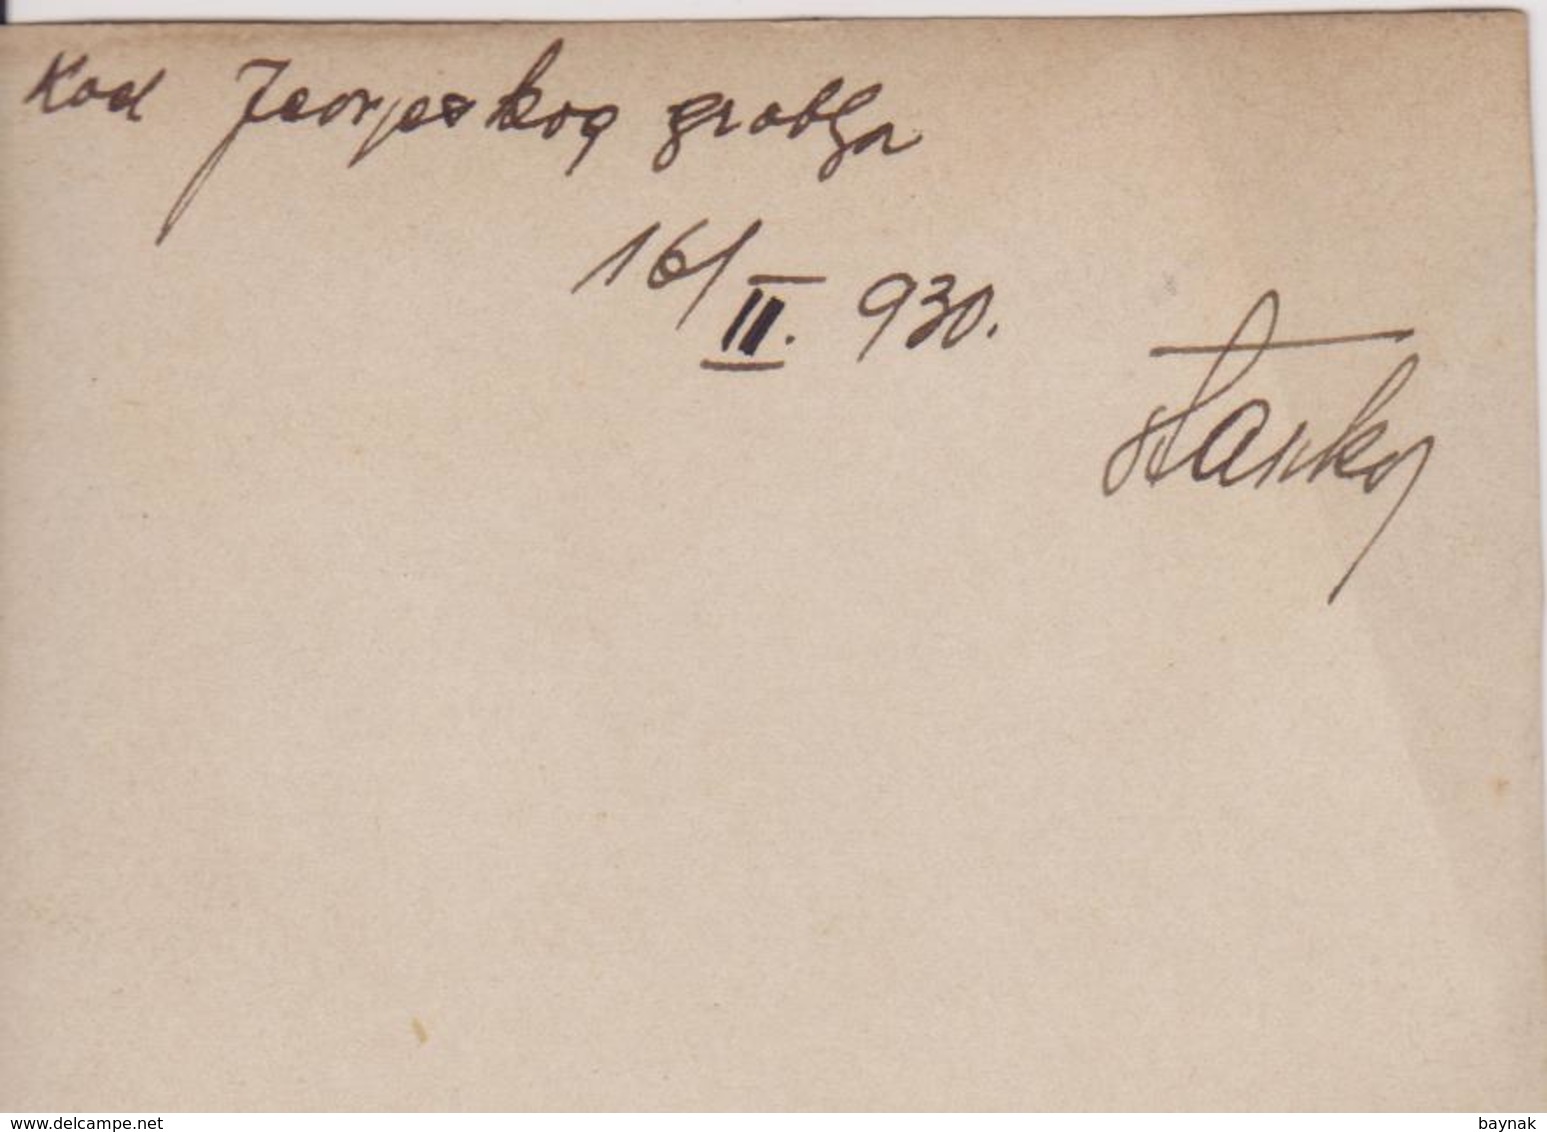 Kod Jevrejskog groblja
16/II. 930.
Stanko
delcampe.net
baynak